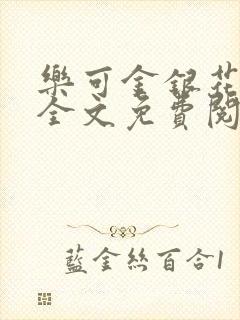 樂可金銀花
全文免費閱
藍金絲百合1